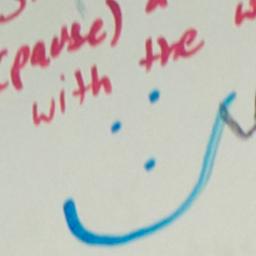 (pause)
with the